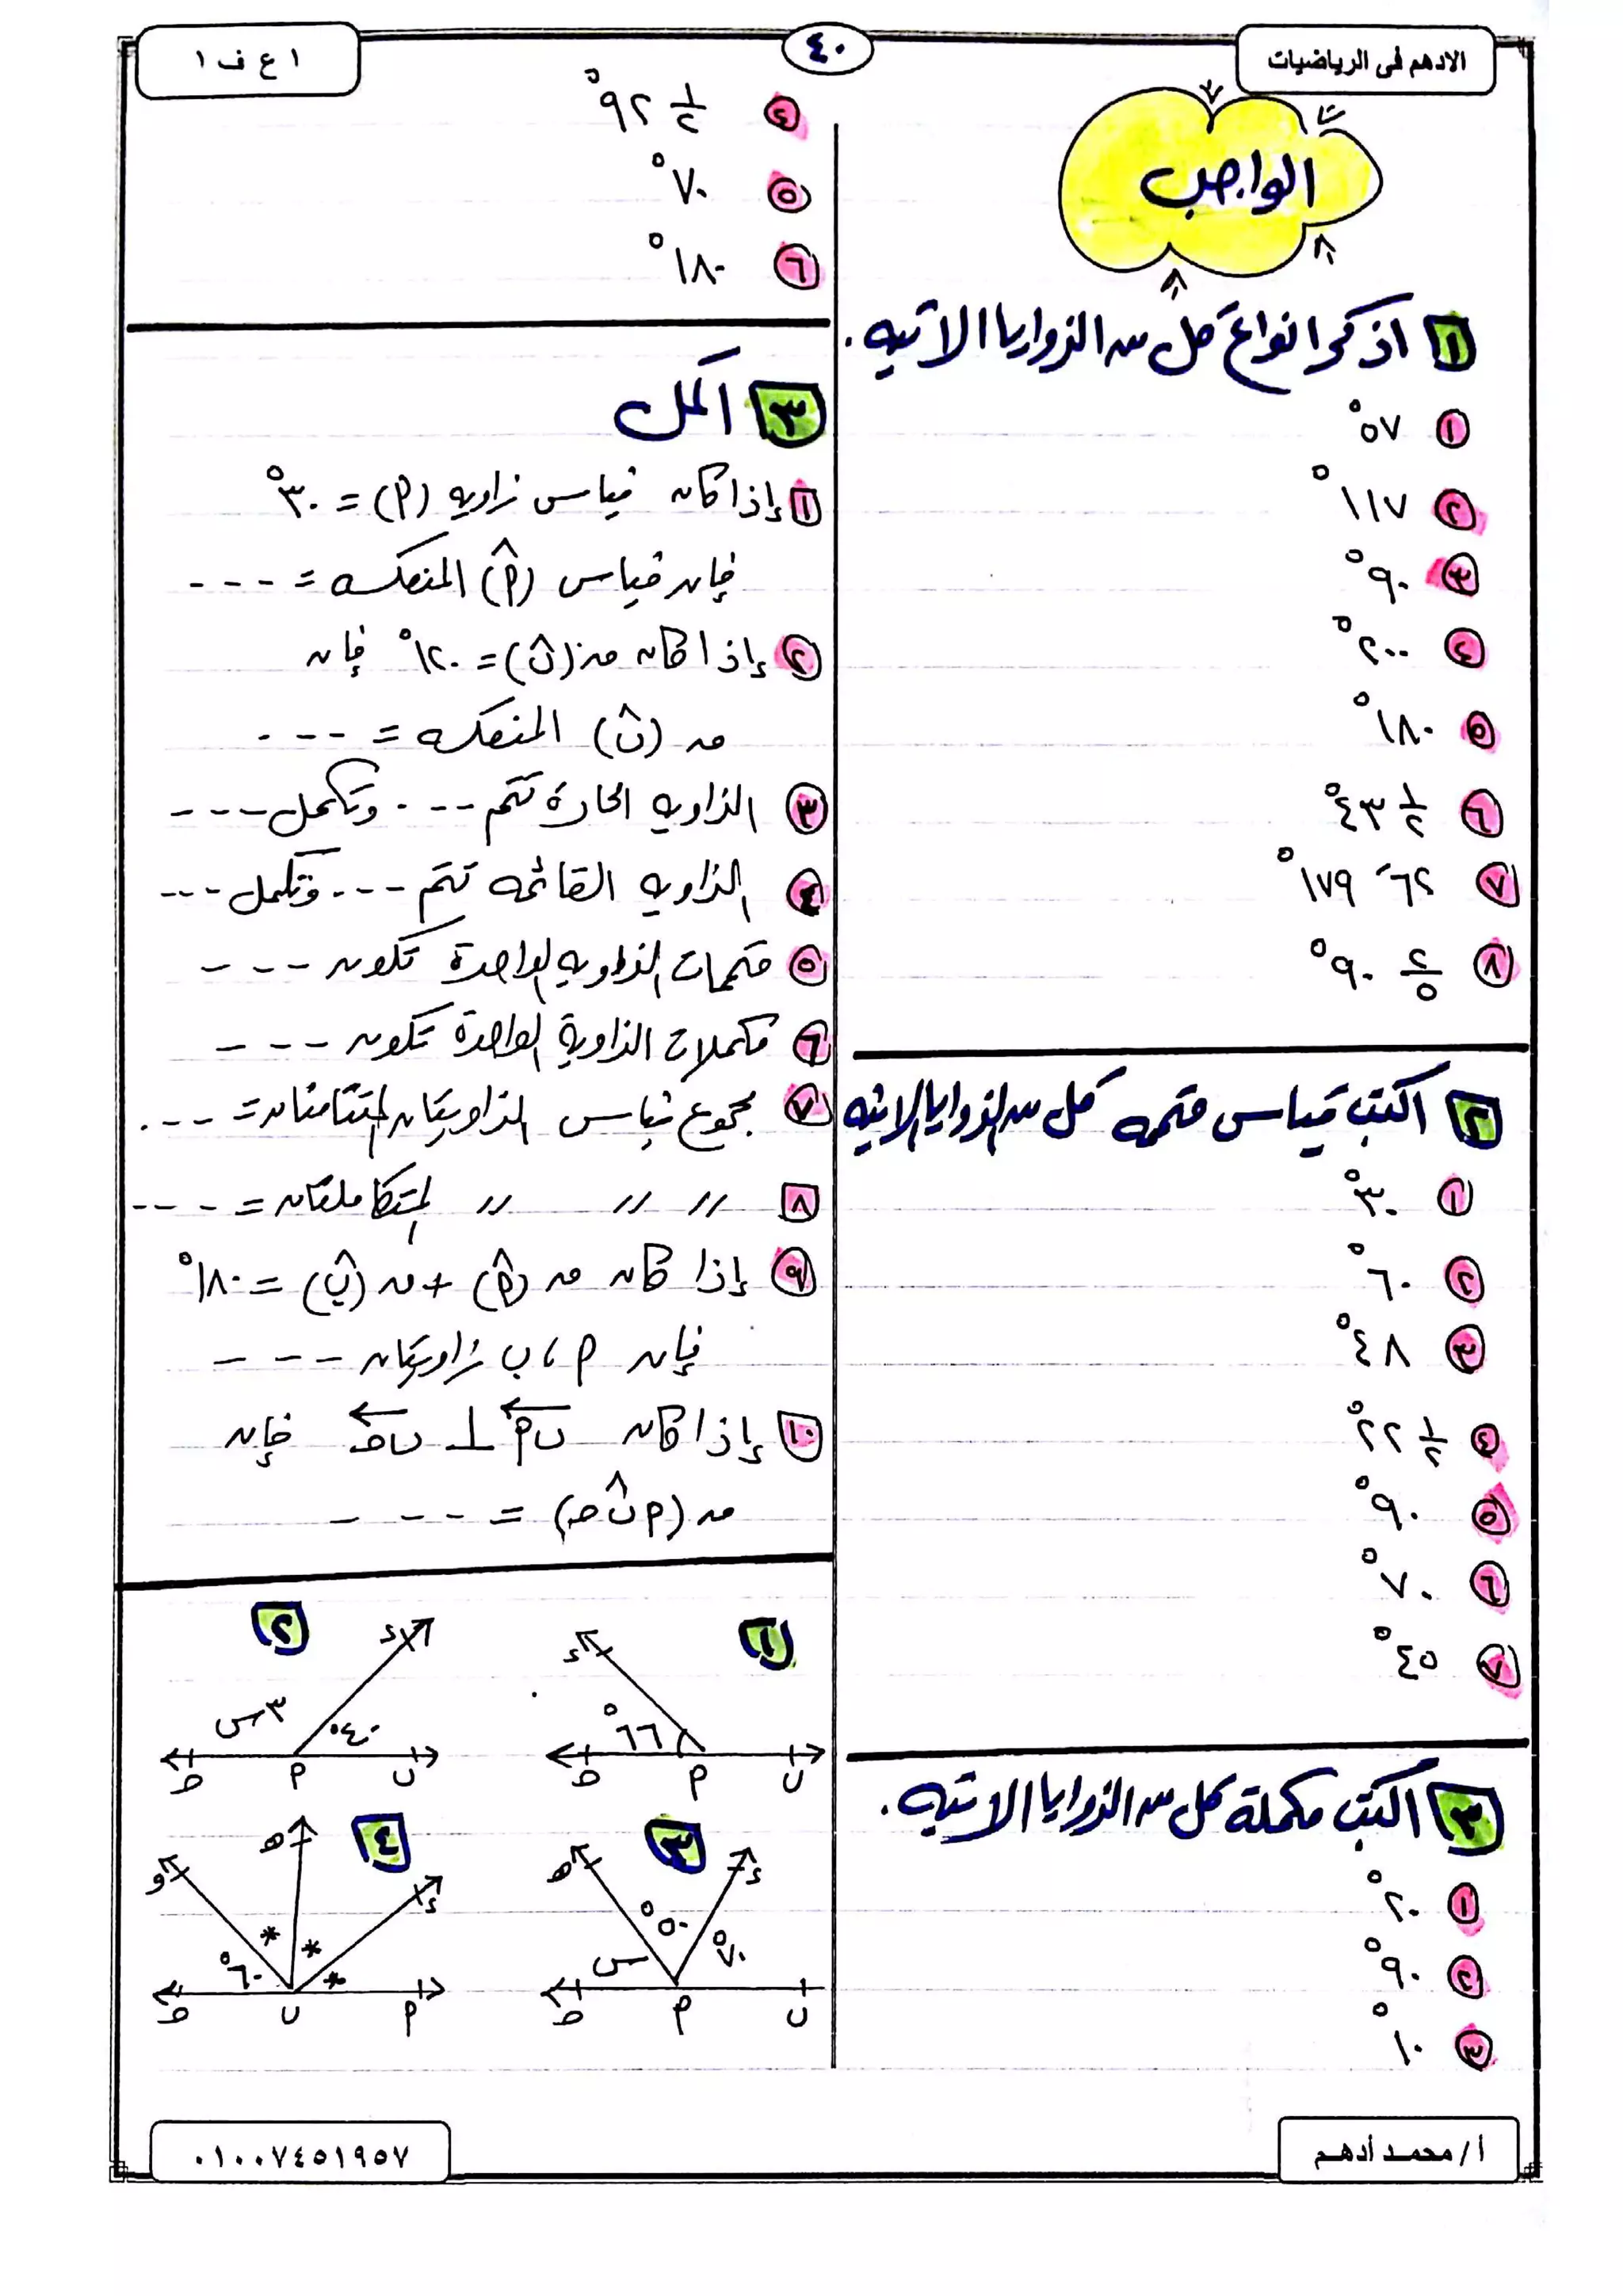 الادهم فى الرياضيات
٤٠
١ ع ف ١
الواجب
١ اذكر انواع كل من الزوايا الاتيه .
١ ٥٧°
٢ ١١٧°
٣ ٩٠°
٤ ٢٠٠°
٥ ١٨٠°
٦ ٤٣ ١/٢°
٧ ٦٢´ ١٧٩°
٨ ٩٠ ٢/٥°
٢ اكتب قياس متممه كل من الزوايا الاتيه
١ ٣٠°
٢ ٦٠°
٣ ٤٨°
٤ ٢٢ ١/٢°
٥ ٩٠°
٦ ٧٠°
٧ ٤٥°
٣ اكتب مكملة كل من الزوايا الاتيه .
١ ٢٠°
٢ ٩٠°
٣ ١٠°
٤ ٩٢ ١/٢°
٥ ٧٠°
٦ ١٨٠°
٣ اكمل
١ إذا كان قياس زاويه (م) = ٣٠°
فإن قياس (م̂) المنعكسه = ---
٢ إذا كان مد (ن̂) = ١٢٠° فإن
مد (ن̂) المنعكسه = ---
٣ الزاويه الحادة تتمم --- وتكمل ---
٤ الزاويه القائمه تتمم --- وتكمل ---
٥ متممات الزاويه الواحدة تكون ---
٦ مكملات الزاوية الواحدة تكون ---
٧ مجموع قياس الزاويتان المتتامتان = ---
٨ 〃 〃 〃 المتكاملتان = ----
٩ إذا كان مد (م̂) + مد (ب̂) = ١٨٠°
فإن م ، ب زاويتان ---
١٠ إذا كان ب م ⊥ ب ج فإن
مد (م ب̂ ج) = ---
١
ء
٦٦°
ج م ب
٢
ء
٣س
٤٠°
ج م ب
٣
ه ء
٥٠°
٧٠°
س
ج م ب
٤
ه
و
ء
* * *
٦٠°
ج ب م
أ / محمد أدهم
٠١٠٠٧٤٥١٩٥٧